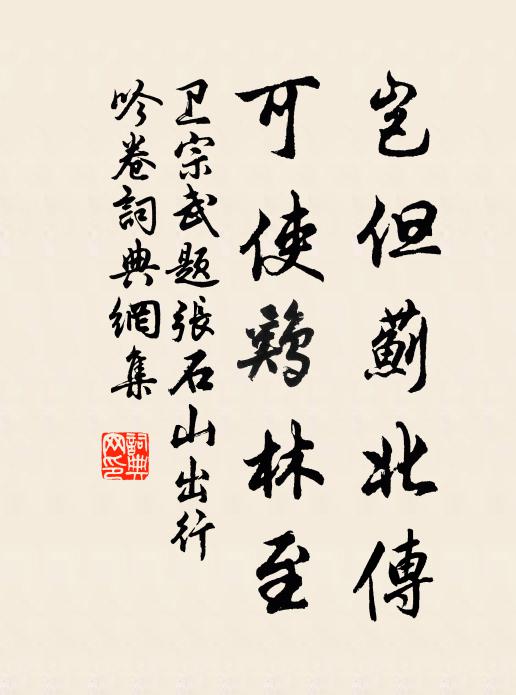 岂但蓟北傳
可使鷄林至
卫宗武题張石山出行
吟卷詞典網集
詞典网印